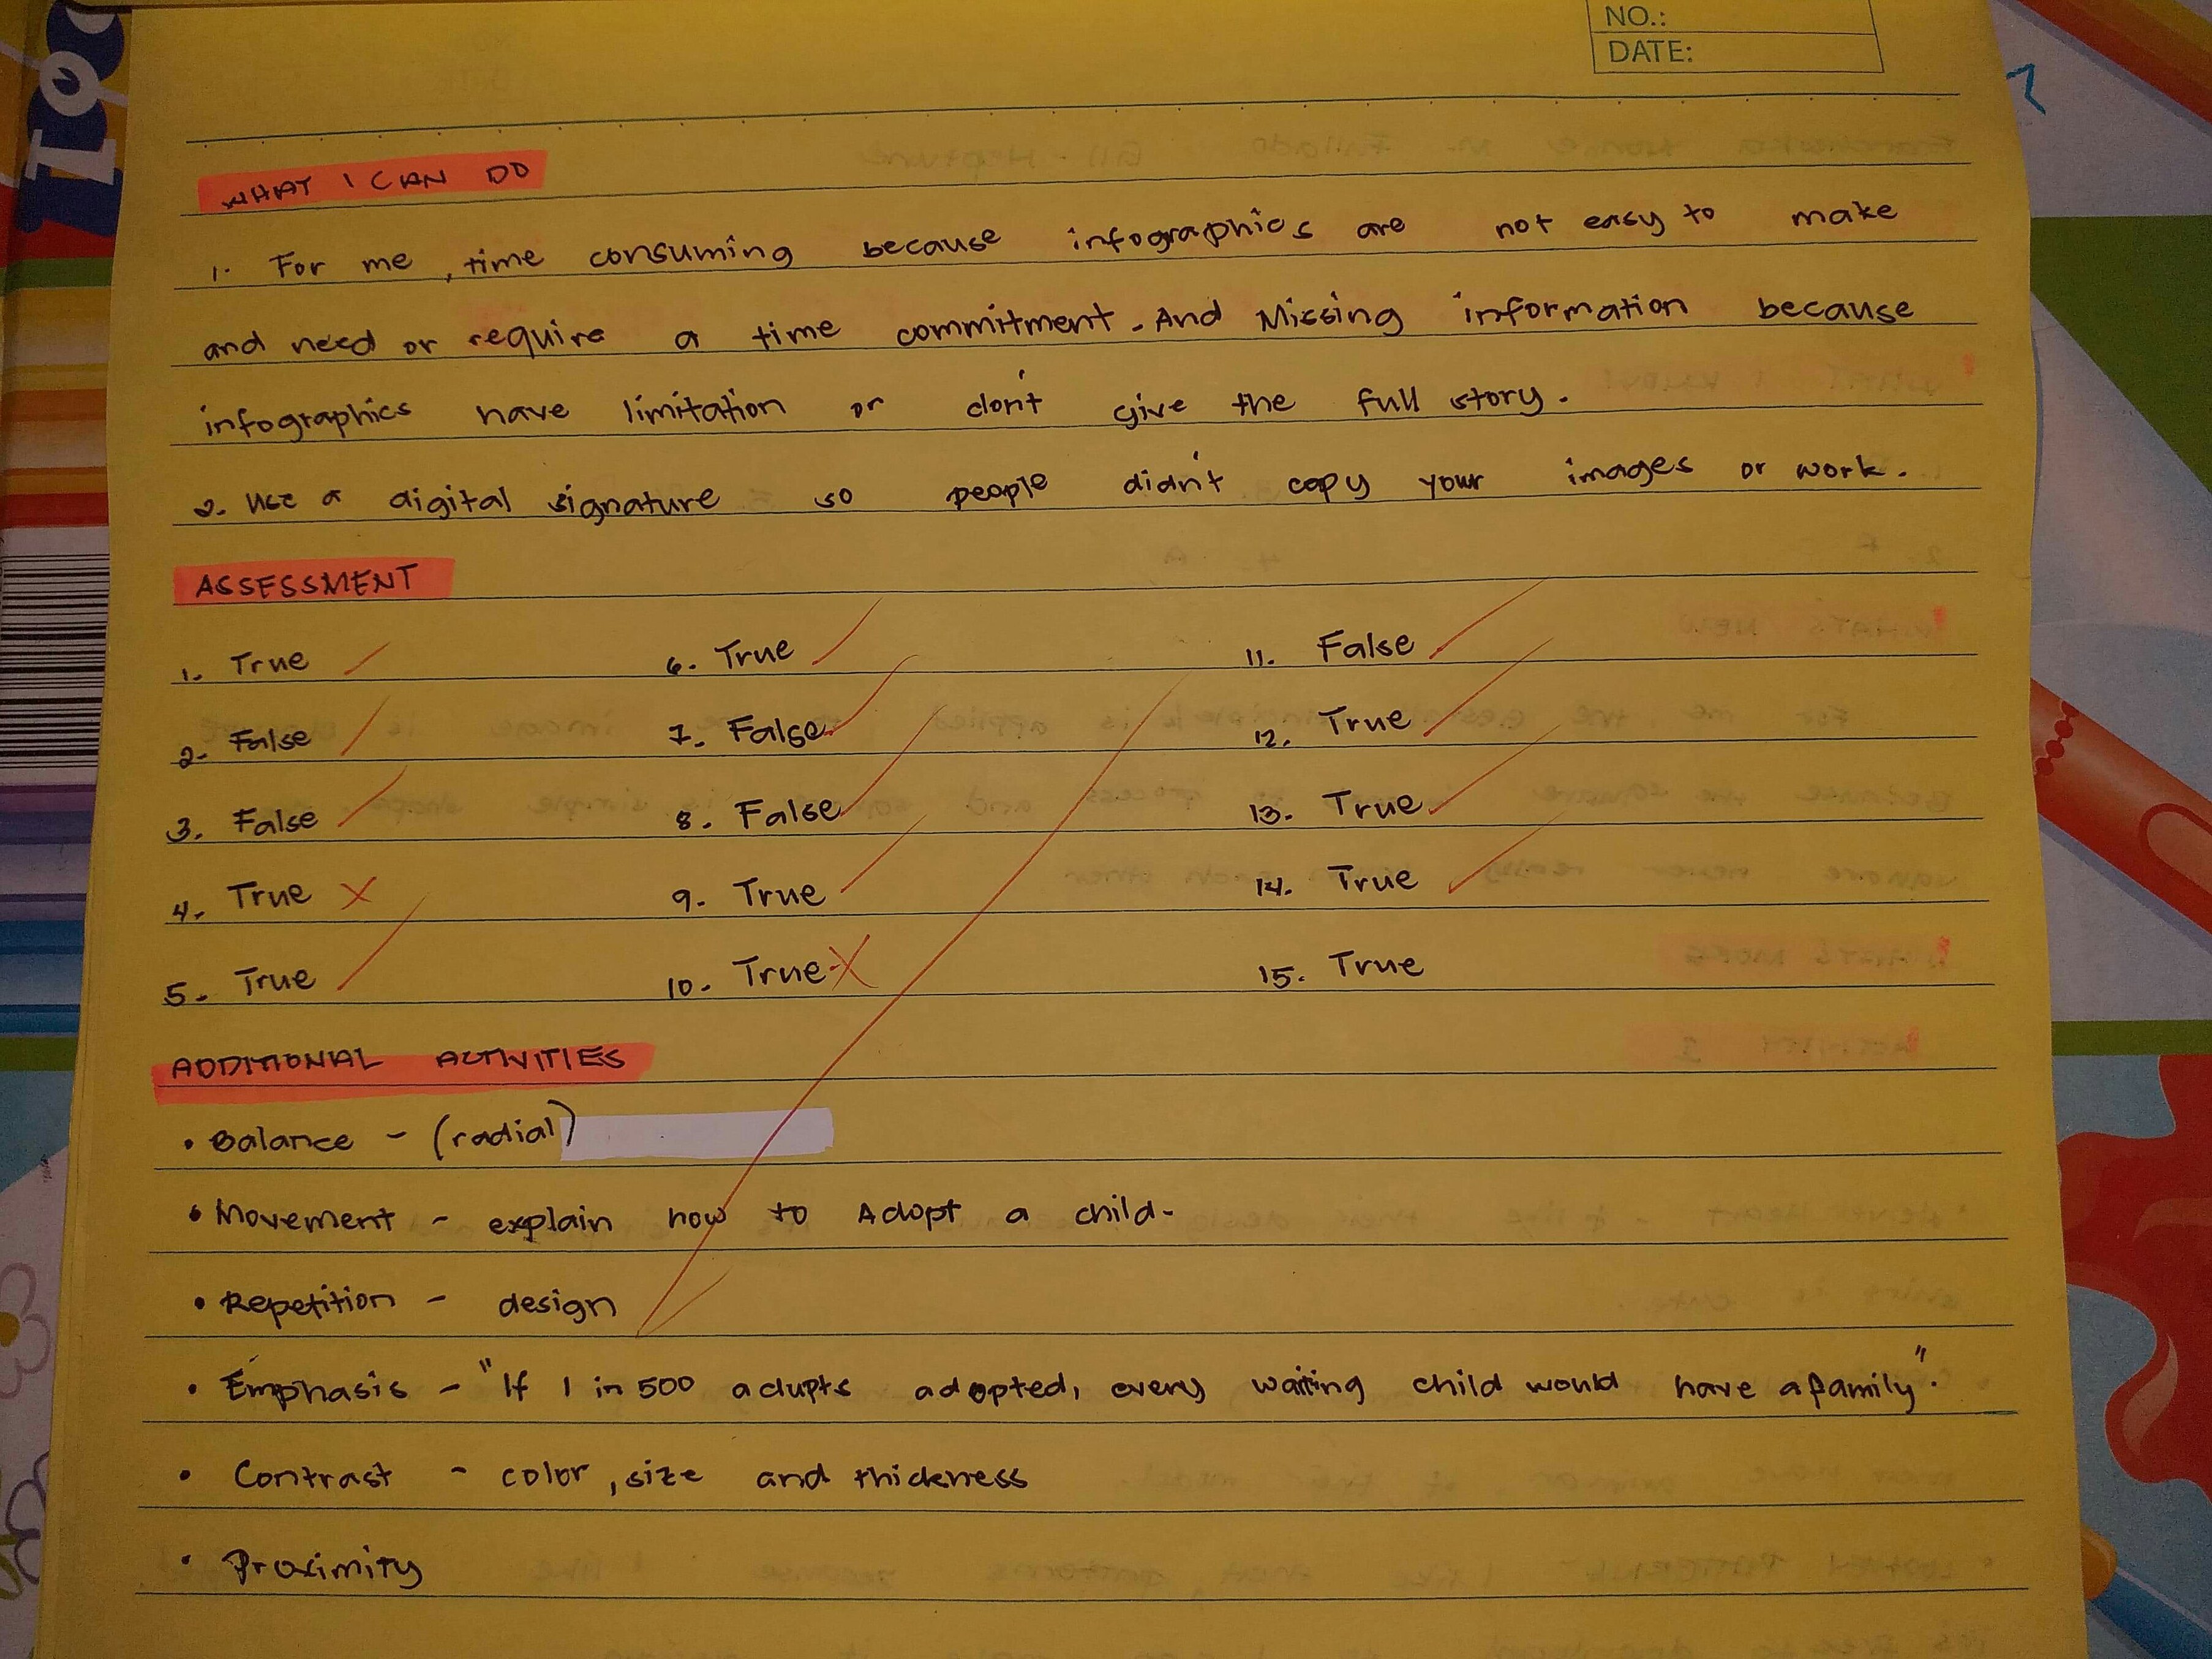 NO.:
DATE:
WHAT I CAN DO
1. For me, time consuming because infographics are not easy to make
and need or require a time commitment. And Missing information because
infographics have limitation or don't give the full story.
2. Use a digital signature so people didn't copy your images or work.
ASSESSMENT
1. True 6. True 11. False
2. False 7. False 12. True
3. False 8. False 13. True
4. True 9. True 14. True
5. True 10. True 15. True
ADDITIONAL ACTIVITIES
• Balance - (radial)
• Movement - explain how to Adopt a child.
• Repetition - design
• Emphasis - "If 1 in 500 adupts adopted, every waiting child would have a family".
• Contrast - color, size and thickness
• Proximity